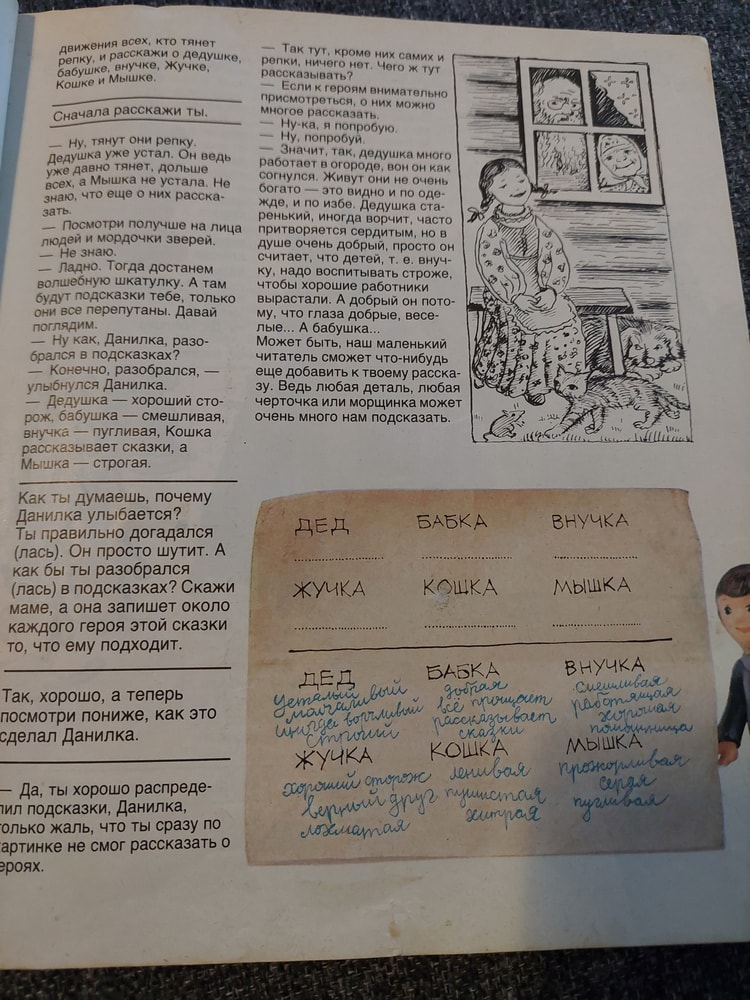 движения всех, кто тянет
репку, и расскажи о дедушке,
бабушке, внучке, Жучке,
Кошке и Мышке.
Сначала расскажи ты.
— Ну, тянут они репку.
Дедушка уже устал. Он ведь
уже давно тянет, дольше
всех, а Мышка не устала. Не
знаю, что еще о них расска-
зать.
— Посмотри получше на лица
людей и мордочки зверей.
— Не знаю.
— Ладно. Тогда достанем
волшебную шкатулку. А там
будут подсказки тебе, только
они все перепутаны. Давай
поглядим.
— Ну как, Данилка, разо-
брался в подсказках?
— Конечно, разобрался, —
улыбнулся Данилка.
— Дедушка — хороший сто-
рож, бабушка — смешливая,
внучка — пугливая, Кошка
рассказывает сказки, а
Мышка — строгая.
Как ты думаешь, почему
Данилка улыбается?
Ты правильно догадался
(лась). Он просто шутит. А
как бы ты разобрался
(лась) в подсказках? Скажи
маме, а она запишет около
каждого героя этой сказки
то, что ему подходит.
Так, хорошо, а теперь
посмотри пониже, как это
сделал Данилка.
— Да, ты хорошо распреде-
лил подсказки, Данилка,
только жаль, что ты сразу по
картинке не смог рассказать о
героях.
— Так тут, кроме них самих и
репки, ничего нет. Чего ж тут
рассказывать?
— Если к героям внимательно
присмотреться, о них можно
многое рассказать.
— Ну-ка, я попробую.
— Ну, попробуй.
— Значит, так, дедушка много
работает в огороде, вон он как
согнулся. Живут они не очень
богато — это видно и по оде-
жде, и по избе. Дедушка ста-
ренький, иногда ворчит, часто
притворяется сердитым, но в
душе очень добрый, просто он
считает, что детей, т. е. внуч-
ку, надо воспитывать строже,
чтобы хорошие работники
вырастали. А добрый он пото-
му, что глаза добрые, весе-
лые... А бабушка...
Может быть, наш маленький
читатель сможет что-нибудь
еще добавить к твоему расска-
зу. Ведь любая деталь, любая
черточка или морщинка может
очень много нам подсказать.
ДЕД БАБКА ВНУЧКА
ЖУЧКА КОШКА МЫШКА
ДЕД БАБКА ВНУЧКА
Усталый добрая смешливая
молчаливый всё прощает работящая
иногда ворчливый рассказывает хорошая
строгий сказки помощница
ЖУЧКА КОШКА МЫШКА
хороший сторож ленивая прожорливая
верный друг пушистая серая
лохматая хитрая пугливая